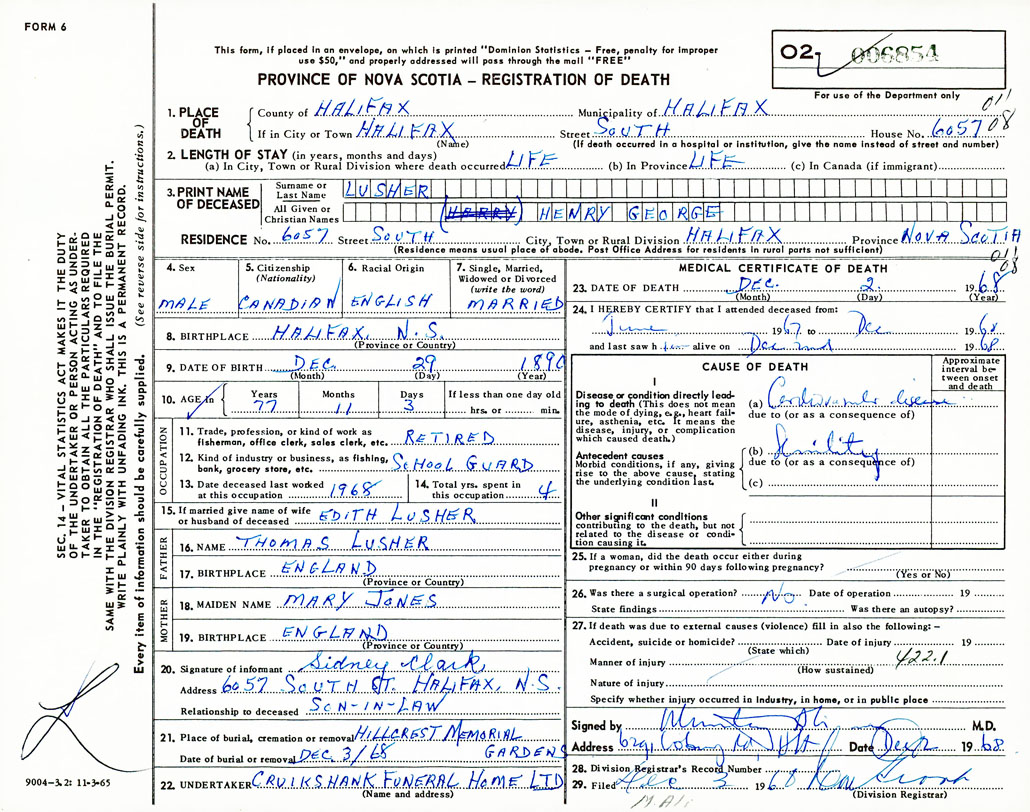 FORM 6
This form, if placed in an envelope, on which is printed "Dominion Statistics – Free, penalty for improper
use $50," and properly addressed will pass through the mail "FREE"
02 006854
PROVINCE OF NOVA SCOTIA – REGISTRATION OF DEATH
For use of the Department only
011
08
1. PLACE OF DEATH
County of HALIFAX Municipality of HALIFAX
If in City or Town HALIFAX Street SOUTH House No. 6057
(Name) (If death occurred in a hospital or institution, give the name instead of street and number)
2. LENGTH OF STAY (in years, months and days)
(a) In City, Town or Rural Division where death occurred LIFE (b) In Province LIFE (c) In Canada (if immigrant)
3. PRINT NAME OF DECEASED
Surname or Last Name LUSHER
All Given or Christian Names (HARRY) HENRY GEORGE
RESIDENCE No. 6057 Street SOUTH City, Town or Rural Division HALIFAX Province NOVA SCOTIA
(Residence means usual place of abode. Post Office Address for residents in rural parts not sufficient)
011
08
4. Sex MALE
5. Citizenship (Nationality) CANADIAN
6. Racial Origin ENGLISH
7. Single, Married, Widowed or Divorced (write the word) MARRIED
8. BIRTHPLACE HALIFAX, N.S.
(Province or Country)
9. DATE OF BIRTH DEC. 29 1890
(Month) (Day) (Year)
10. AGE in Years 77 Months 11 Days 3 If less than one day old hrs. or min.
OCCUPATION
11. Trade, profession, or kind of work as
fisherman, office clerk, sales clerk, etc. RETIRED
12. Kind of industry or business, as fishing,
bank, grocery store, etc. SCHOOL GUARD
13. Date deceased last worked
at this occupation 1968
14. Total yrs. spent in
this occupation 4
15. If married give name of wife
or husband of deceased EDITH LUSHER
FATHER
16. NAME THOMAS LUSHER
17. BIRTHPLACE ENGLAND
(Province or Country)
MOTHER
18. MAIDEN NAME MARY JONES
19. BIRTHPLACE ENGLAND
(Province or Country)
20. Signature of informant Sidney Clark
Address 6057 SOUTH ST. HALIFAX, N.S.
Relationship to deceased SON-IN-LAW
21. Place of burial, cremation or removal HILLCREST MEMORIAL
GARDENS
Date of burial or removal DEC 3/68
22. UNDERTAKER CRUIKSHANK FUNERAL HOME LTD
(Name and address)
MEDICAL CERTIFICATE OF DEATH
23. DATE OF DEATH DEC. 2 1968
(Month) (Day) (Year)
24. I HEREBY CERTIFY that I attended deceased from:
June 1967 to Dec 1968
and last saw h im alive on Dec 2nd 1968
CAUSE OF DEATH
Approximate interval between onset and death
I
Disease or condition directly lead-
ing to death (This does not mean
the mode of dying, e.g., heart fail-
ure, asthenia, etc. It means the
disease, injury, or complication
which caused death.)
(a) disease
due to (or as a consequence of)
Antecedent causes
Morbid conditions, if any, giving
rise to the above cause, stating
the underlying condition last.
(b) Senility
due to (or as a consequence of)
(c)
II
Other significant conditions
contributing to the death, but not
related to the disease or condi-
tion causing it.
25. If a woman, did the death occur either during
pregnancy or within 90 days following pregnancy?
(Yes or No)
26. Was there a surgical operation? No Date of operation 19
State findings Was there an autopsy?
27. If death was due to external causes (violence) fill in also the following: –
Accident, suicide or homicide? Date of injury 19
(State which)
422.1
Manner of injury
(How sustained)
Nature of injury
Specify whether injury occurred in Industry, in home, or in public place
Signed by M.D.
Address Coburg Rd Date Dec 2 1968
28. Division Registrar's Record Number
29. Filed Dec 3 1968
(Division Registrar)
SEC. 14 – VITAL STATISTICS ACT MAKES IT THE DUTY
OF THE UNDERTAKER OR PERSON ACTING AS UNDER-
TAKER TO OBTAIN ALL THE PARTICULARS REQUIRED
IN THE "REGISTRATION OF DEATH" AND TO FILE THE
SAME WITH THE DIVISION REGISTRAR WHO SHALL ISSUE THE BURIAL PERMIT.
WRITE PLAINLY WITH UNFADING INK. THIS IS A PERMANENT RECORD.
Every item of information should be carefully supplied. (See reverse side for instructions.)
9004-3.2: 11-3-65